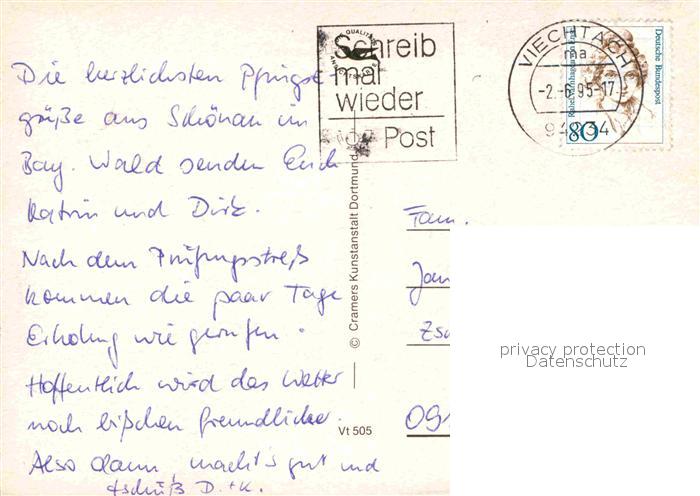 Die herzlichsten Pfingst-
grüße aus Schönau im
Bay. Wald senden Euch
Katrin und Dirk.
Nach dem Prüfungsstreß
kommen die paar Tage
Erholung wie gerufen.
Hoffentlich wird das Wetter
noch bißchen freundlicher.
Also dann, macht's gut und
tschüß D. + K.
Schreib
mal
wieder
Post
VIECHTACH
ma
-2.-6.95-17
94234
Deutsche Bundespost
80
© Cramers Kunstanstalt Dortmund
Vt 505
Fam.
Jan
Zsc
091
privacy protection
Datenschutz